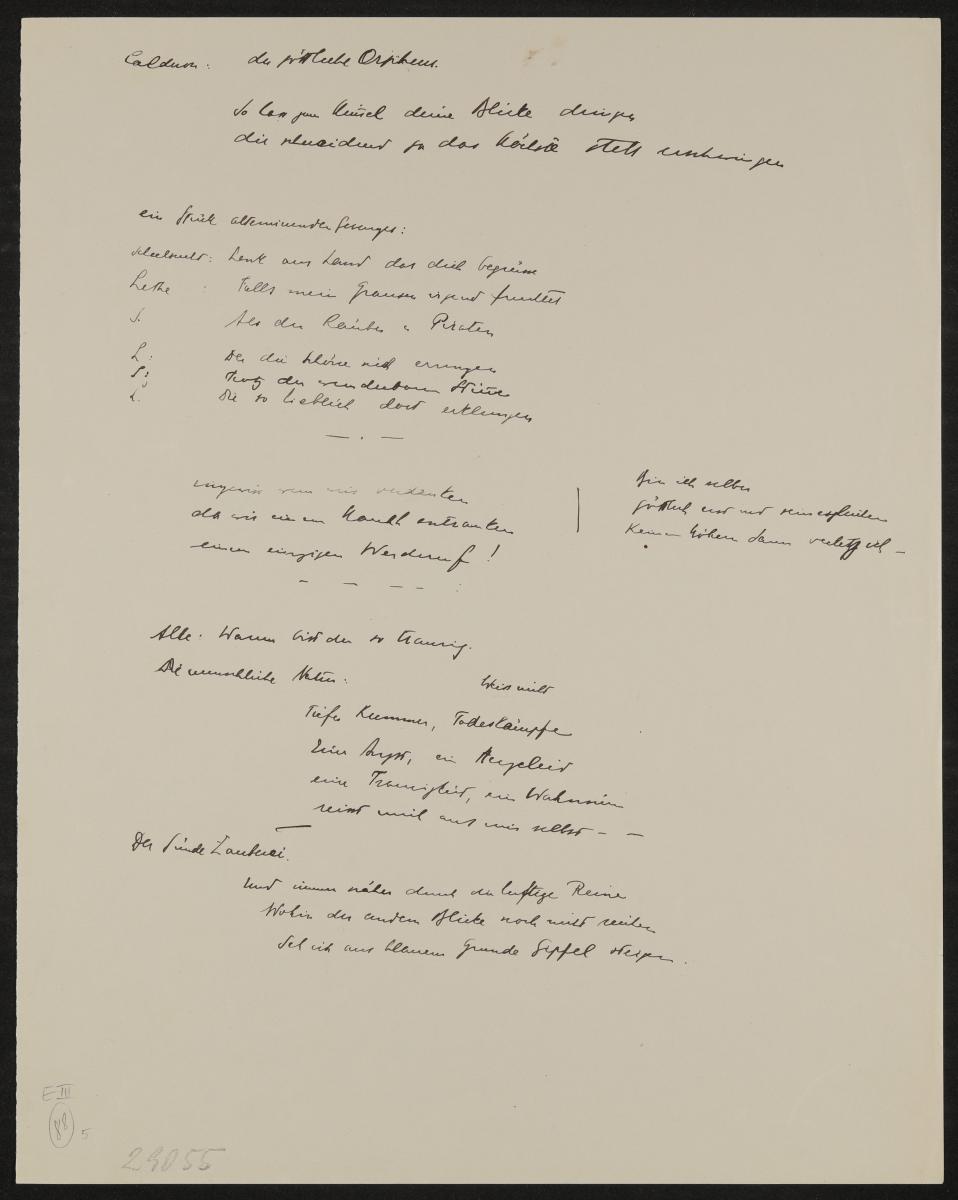 Calderon: der göttliche Orpheus.
So lass zum Himmel deine Blicke dringen
die schneidend zu das Höchste stets
ein Stück alternierenden Gesanges:
Lenk ans Land das dich begrüsse
Lethe : Falls mein Grausen irgend fruchtet
S. Als der Räuber u Piraten
L: Der die Schöne sich errungen
S: Trotz der wunderbaren Stimme
L. Die so lieblich dort erklungen
— . —
wir verdanken
da wir einem Hauch entsanken
einem einzigen Werderuf!
Bin ich selber
göttlich erst und
Keinen Höhern dann verletz ich —
Alle: Warum bist du so traurig.
Die menschliche Natur: Weiss nicht
Tiefer Kummer, Todeskämpfe
Eine Angst, ein Herzeleid
eine Traurigkeit, ein Wahnsinn
reisst mich aus mir selbst — —
Der Sünde Zauberei.
Und immer näher durch die luftige Reine
Wohin der andern Blicke noch nicht reichen
Seh ich aus blauem Grunde Gipfel steigen.
E III
88
5
29055